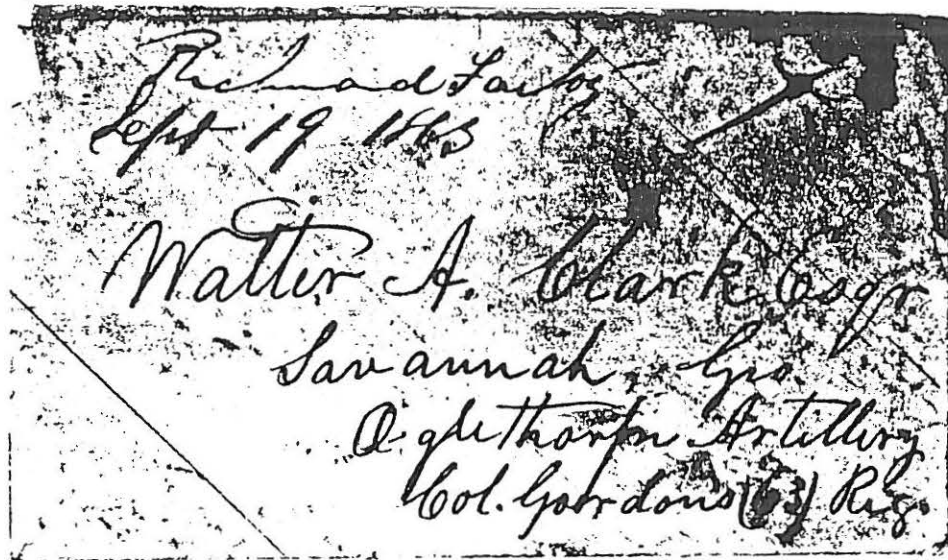 Richmond Factory
Sept 19 1863
Walter A. Clark Esqr
Savannah, Geo
Oglethorpe Artillery
Col. Gordons (63) Reg